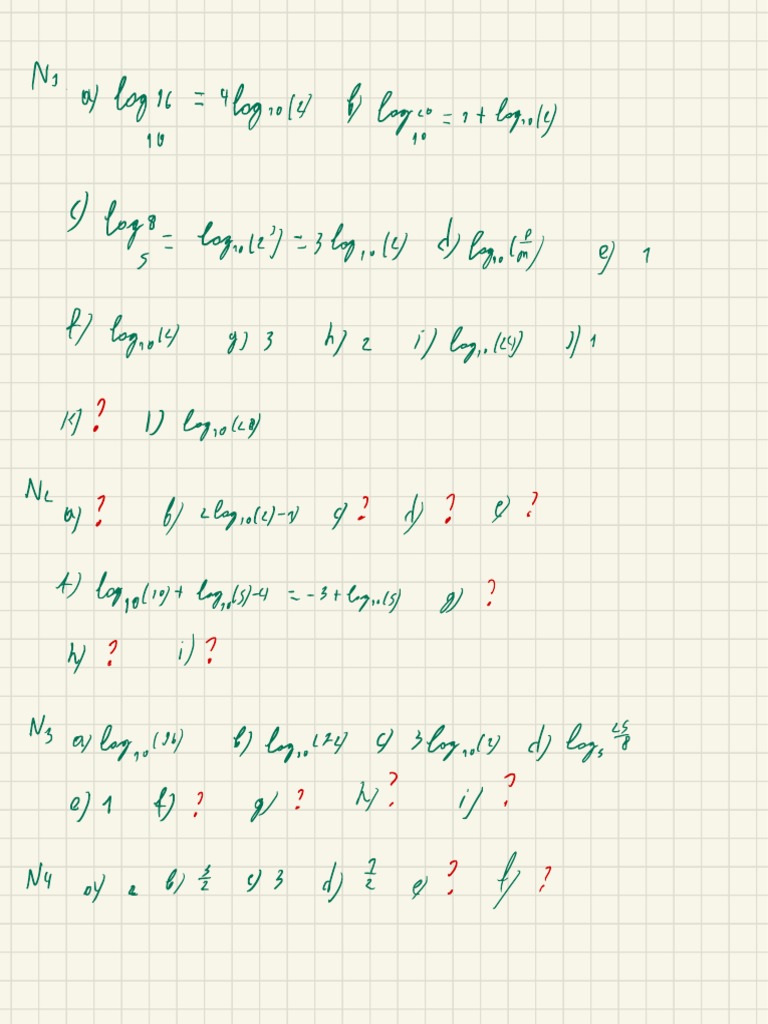 N1 a) log₁₀ 16 = 4log₁₀(2) b) log₁₀ 20 = 1 + log₁₀(2)
c) log₅ 8 = log₁₀(2³) = 3log₁₀(2) d) log₁₀(p/m) e) 1
f) log₁₀(4) g) 3 h) 2 i) log₁₀(24) j) 1
k) ? l) log₁₀(28)
N2 a) ? b) 2log₁₀(2)-1 c) ? d) ? e) ?
f) log₁₀(10) + log₁₀(5)-4 = -3 + log₁₀(5) g) ?
h) ? i) ?
N3 a) log₁₀(96) b) log₁₀(72) c) 3log₁₀(2) d) log₅ 25/8
e) 1 f) ? g) ? h) ? i) ?
N4 a) 2 b) 3/2 c) 3 d) 7/2 e) ? f) ?